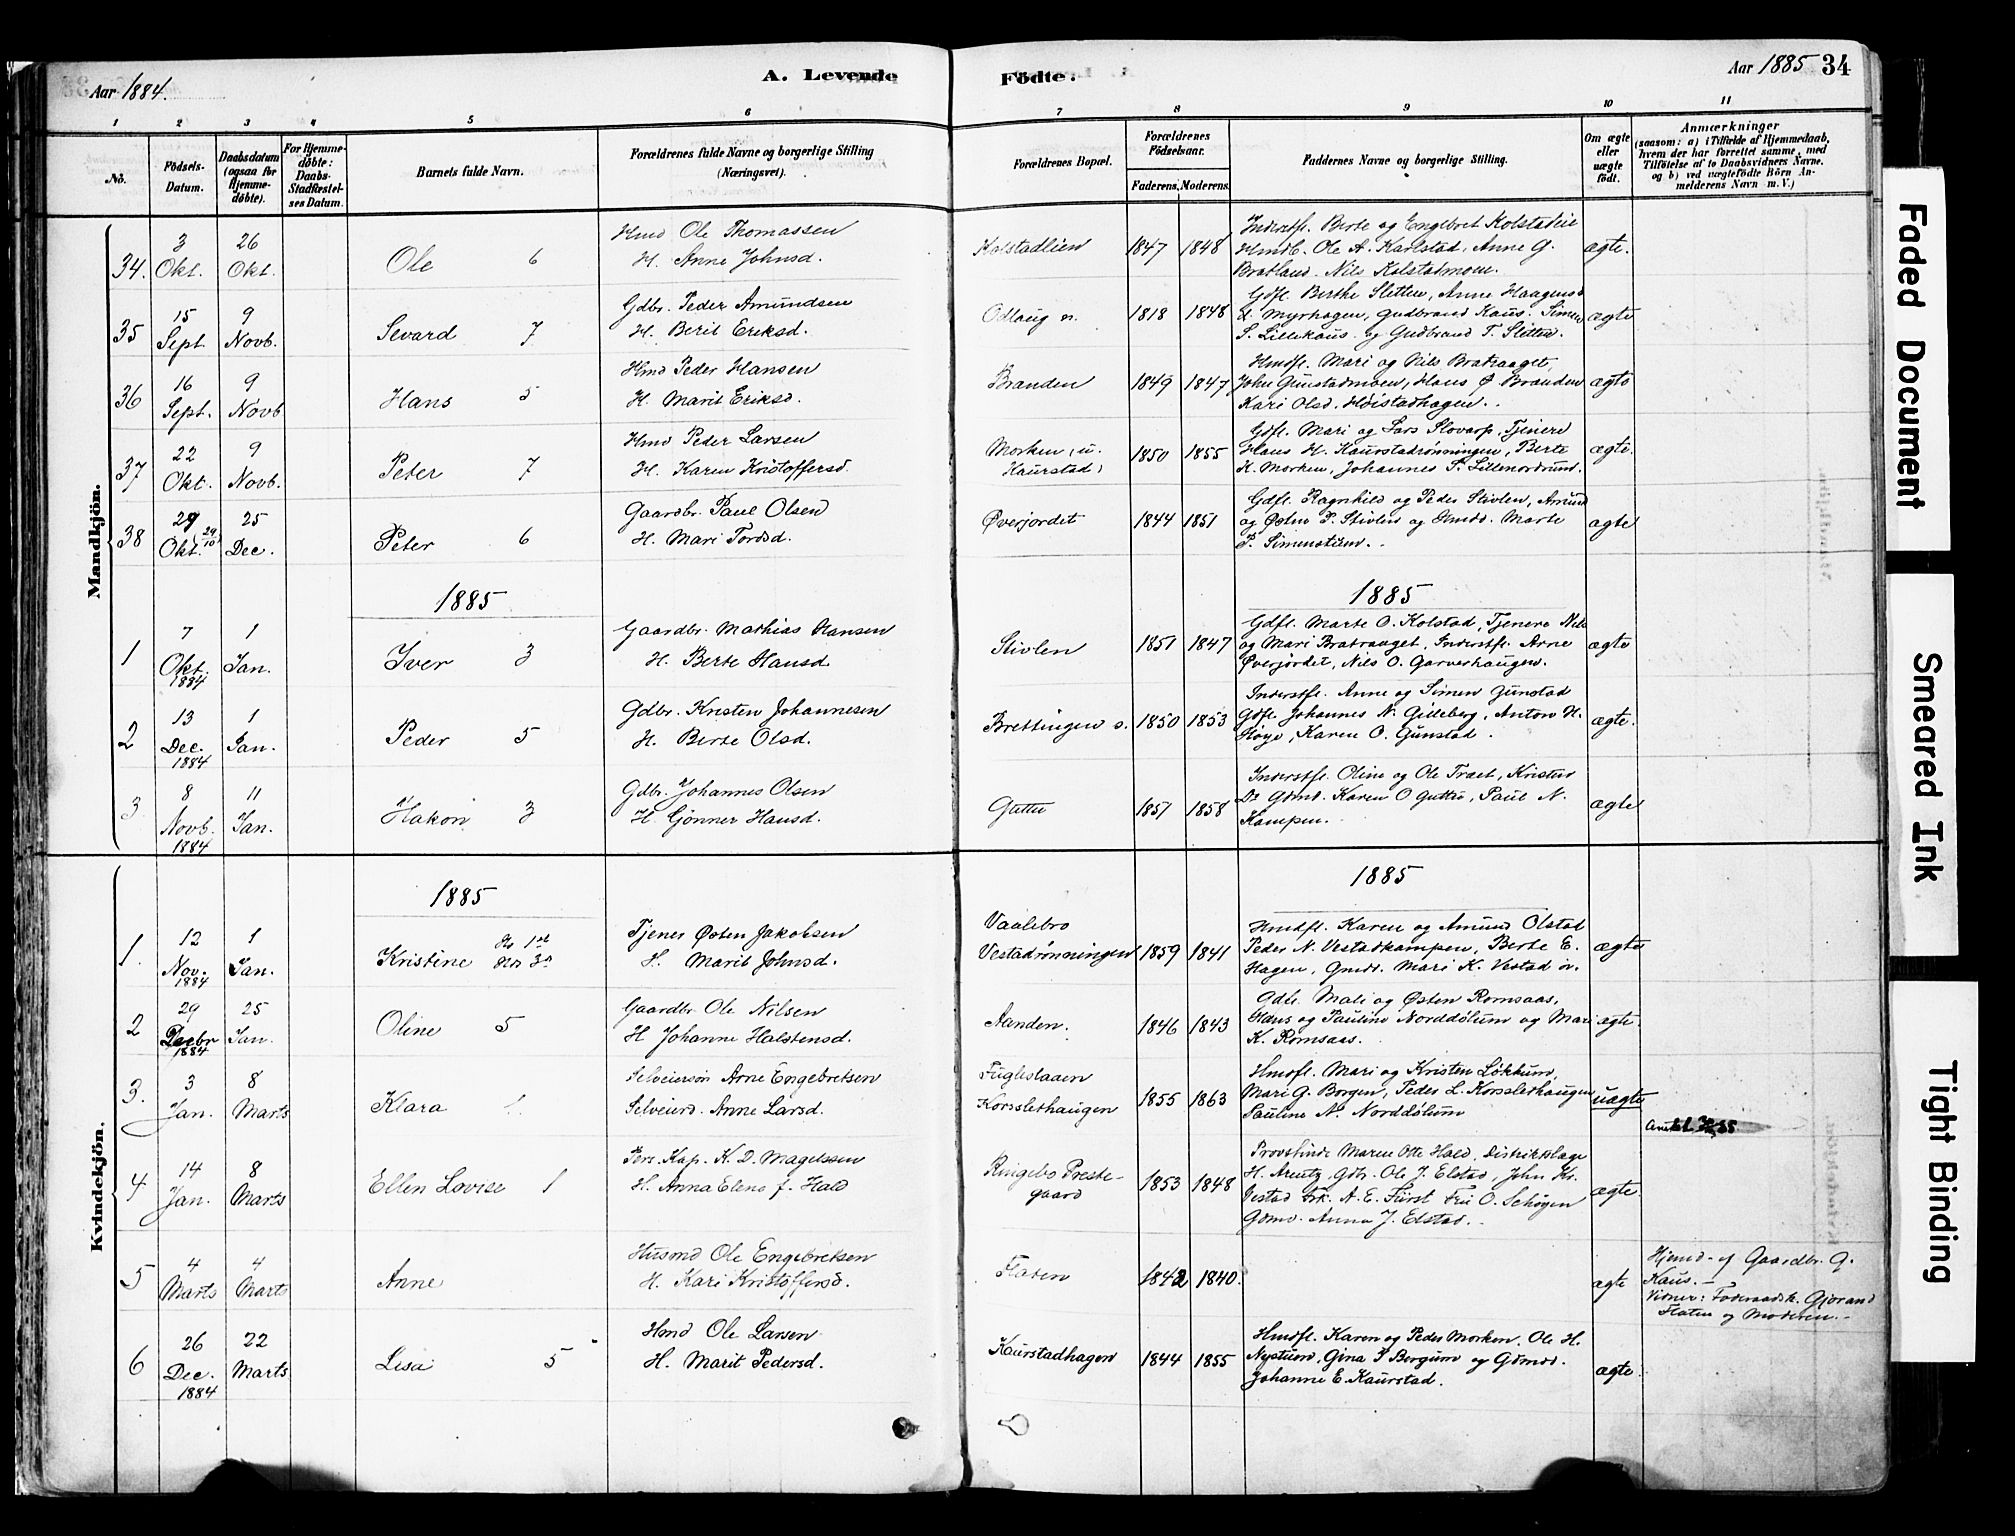 Aar 1884.
A. Levende
Födte.
Aar 1885
34
1 2 3 4 5 6 7 8 9 10 11
No.
Födsels-Datum.
Daabsdatum (ogsaa for Hjemme-döbte).
For Hjemme-döbte: Daabs-Stadfæstel-ses Datum.
Barnets fulde Navn.
Forældrenes fulde Navne og borgerlige Stilling (Næringsvei).
Forældrenes Bopæl.
Forældrenes Födselsaar.
Faderens. Moderens.
Faddernes Navne og borgerlige Stilling.
Om ægte eller uægte födt.
Anmærkninger (saasom: a) i Tilfælde af Hjemmedaab, hvem der har forrettet samme, med Tilföielse af to Daabsvidners Navne, og b) ved uægtefödte Börn An-melderens Navn m. V.)
Mandkjön.
34. 3 Okt. 26 Okt. Ole 6
Hmd Ole Thomassen
H. Anne Johnsd.
Kolstadlien 1847 1848
Inderstf. Berte og Englbret Kolstadlie
Hmdb. Ole A. Karlstad, Anne G.
Bratland. Nils Kolstadmoen.
ægte.
35 15 Sept. 9 Novb. Sevard 7
Gdbr. Peder Amundsen
H. Berit Eriksd.
Odlaug n. 1818 1848
Gdfl. Berthe Sletten, Anne Haagensd
Myrhagen, Gudbrand Kaus. Simen
S. Lillekaus og Gudbrand T. Sletten.
ægte
36 16 Sept. 9 Novb Hans 5
Hmd Peder Hansen
H. Marit Eriksd.
Branden 1849 1847
Hmdfl. Mari og Nils Bratraaget,
John Gunstadmoen, Hans Ø. Branden
Kari Olsd. Høistadhagen.
ægte
37 22 Okt. 9 Novb. Peter 7
Hmd Peder Larsen
H. Karen Kristoffersd.
Morken, u. Kaurstad, 1850 1855
Gdfl. Mari og Lars Slovarp, Tjenere
Hans H. Kaurstadrønningen, Berte
K. Morken, Johannes S. Lillenordrund.
ægte.
38 29 Okt. (29/10) 25 Dec. Peter 6
Gaardbr. Paul Olsen
H. Mari Tordsd.
Øverjordet 1844 1851
Gdfl. Ragnhild og Peder Stivlen, Amund
og Østen P. Stivlen og Gmdd. Marte
P. Simenstuen.
ægte
1885
1885
1 7 Okt. 1884 1 Jan. Iver 3
Gaardbr. Mathias Hansen
H. Berte Hansd.
Stivlen 1851 1847
Gdfl. Marte O. Kolstad, Tjenere Nils
og Mari Bratraaget, Inderstfl. Arne
Øverjordet, Nils O. Garverhaugen.
ægte
2 13 Dec. 1884 1 Jan. Peder 5
Gdbr. Kristen Johannesen
H. Berte Olsd.
Brettingen s. 1850 1853
Inderstfl. Anne og Simen Gunstad
Gdfl Johannes N. Gilleberg, Anton H.
Høye, Karen O. Gunstad.
ægte.
3. 8 Novb. 1884 11 Jan. Hakon 3
Gdbr. Johannes Olsen
H. Gjönner Hansd.
Guttu 1851 1858
Inderstfl. Oline og Ole Traet, Kristen
Do Gdmd. Karen O Guttu, Paul N.
Kampen.
ægte
Kvindekjön.
1885
1885
1. 12 Nov. 1884 1 Jan. Kristine
Tjener Østen Jakobsen
H. Marit Johnsd.
Vaalebro
Vestadrønningen 1859 1841
Hmdfl. Karen og Amund Olstad
Peder N. Vestadkampen, Berte E.
Hagen, Gmdd. Mari K. Vestad
ægte
2 29 Decbr 1884 25 Jan. Oline 5
Gaardbr. Ole Nilsen
H Johanne Halstensd.
Aanden. 1846 1843
Gdfl. Mali og Østen Romsaas,
Hans og Pauline Norddølum og Mari
K. Romsaas.
ægte.
3. 3 Jan. 8 Marts Klara 1.
Selveiersøn Arne Engebretsen
Selveierd. Anne Larsd.
Fuglestaaen
Korsslethaugen 1855 1863
Hmdfl. Mari og Kristen Løkkum,
Mari G. Borgen, Peder L. Korsslethaugen
Pauline N. Norddølum
uægte
4 14 Jan. 8 Marts Ellen Lovise 1
Pers. Kap. K. D. Magelssen
H. Anna Elene f. Hald
Ringebo Preste-gaard 1853 1848
Provstinde Maren Otte Hald, Distriktslæge
H. Arentz Gdbr. Ole J. Elstad, John Kr.
Vestad Frk. A. E. Fürst Fru O. Schøyen
Gdmd. Anna J. Elstad.
ægte.
5 4 Marts 4 Marts Anne
Husmd Ole Engebretsen
H. Kari Kristoffersd.
Flaten 1842 1840.
ægte
Hjemd. af Gaardbr. G.
Kaus.
Vidner: Føderaadsk. Gjørand
Flaten og Moderen.
6 26 Dec. 1884 22 Marts Lisa 5
Hmd Ole Larsen
H. Marit Pedersd.
Kaurstadhagen 1844 1855
Hmdfl. Karen og Peder Morken. Ole H.
Nystuen, Gina P Bergum og Gdmdd.
Johanne E. Kaurstad.
ægte.
Faded Document
Smeared Ink
Tight Binding